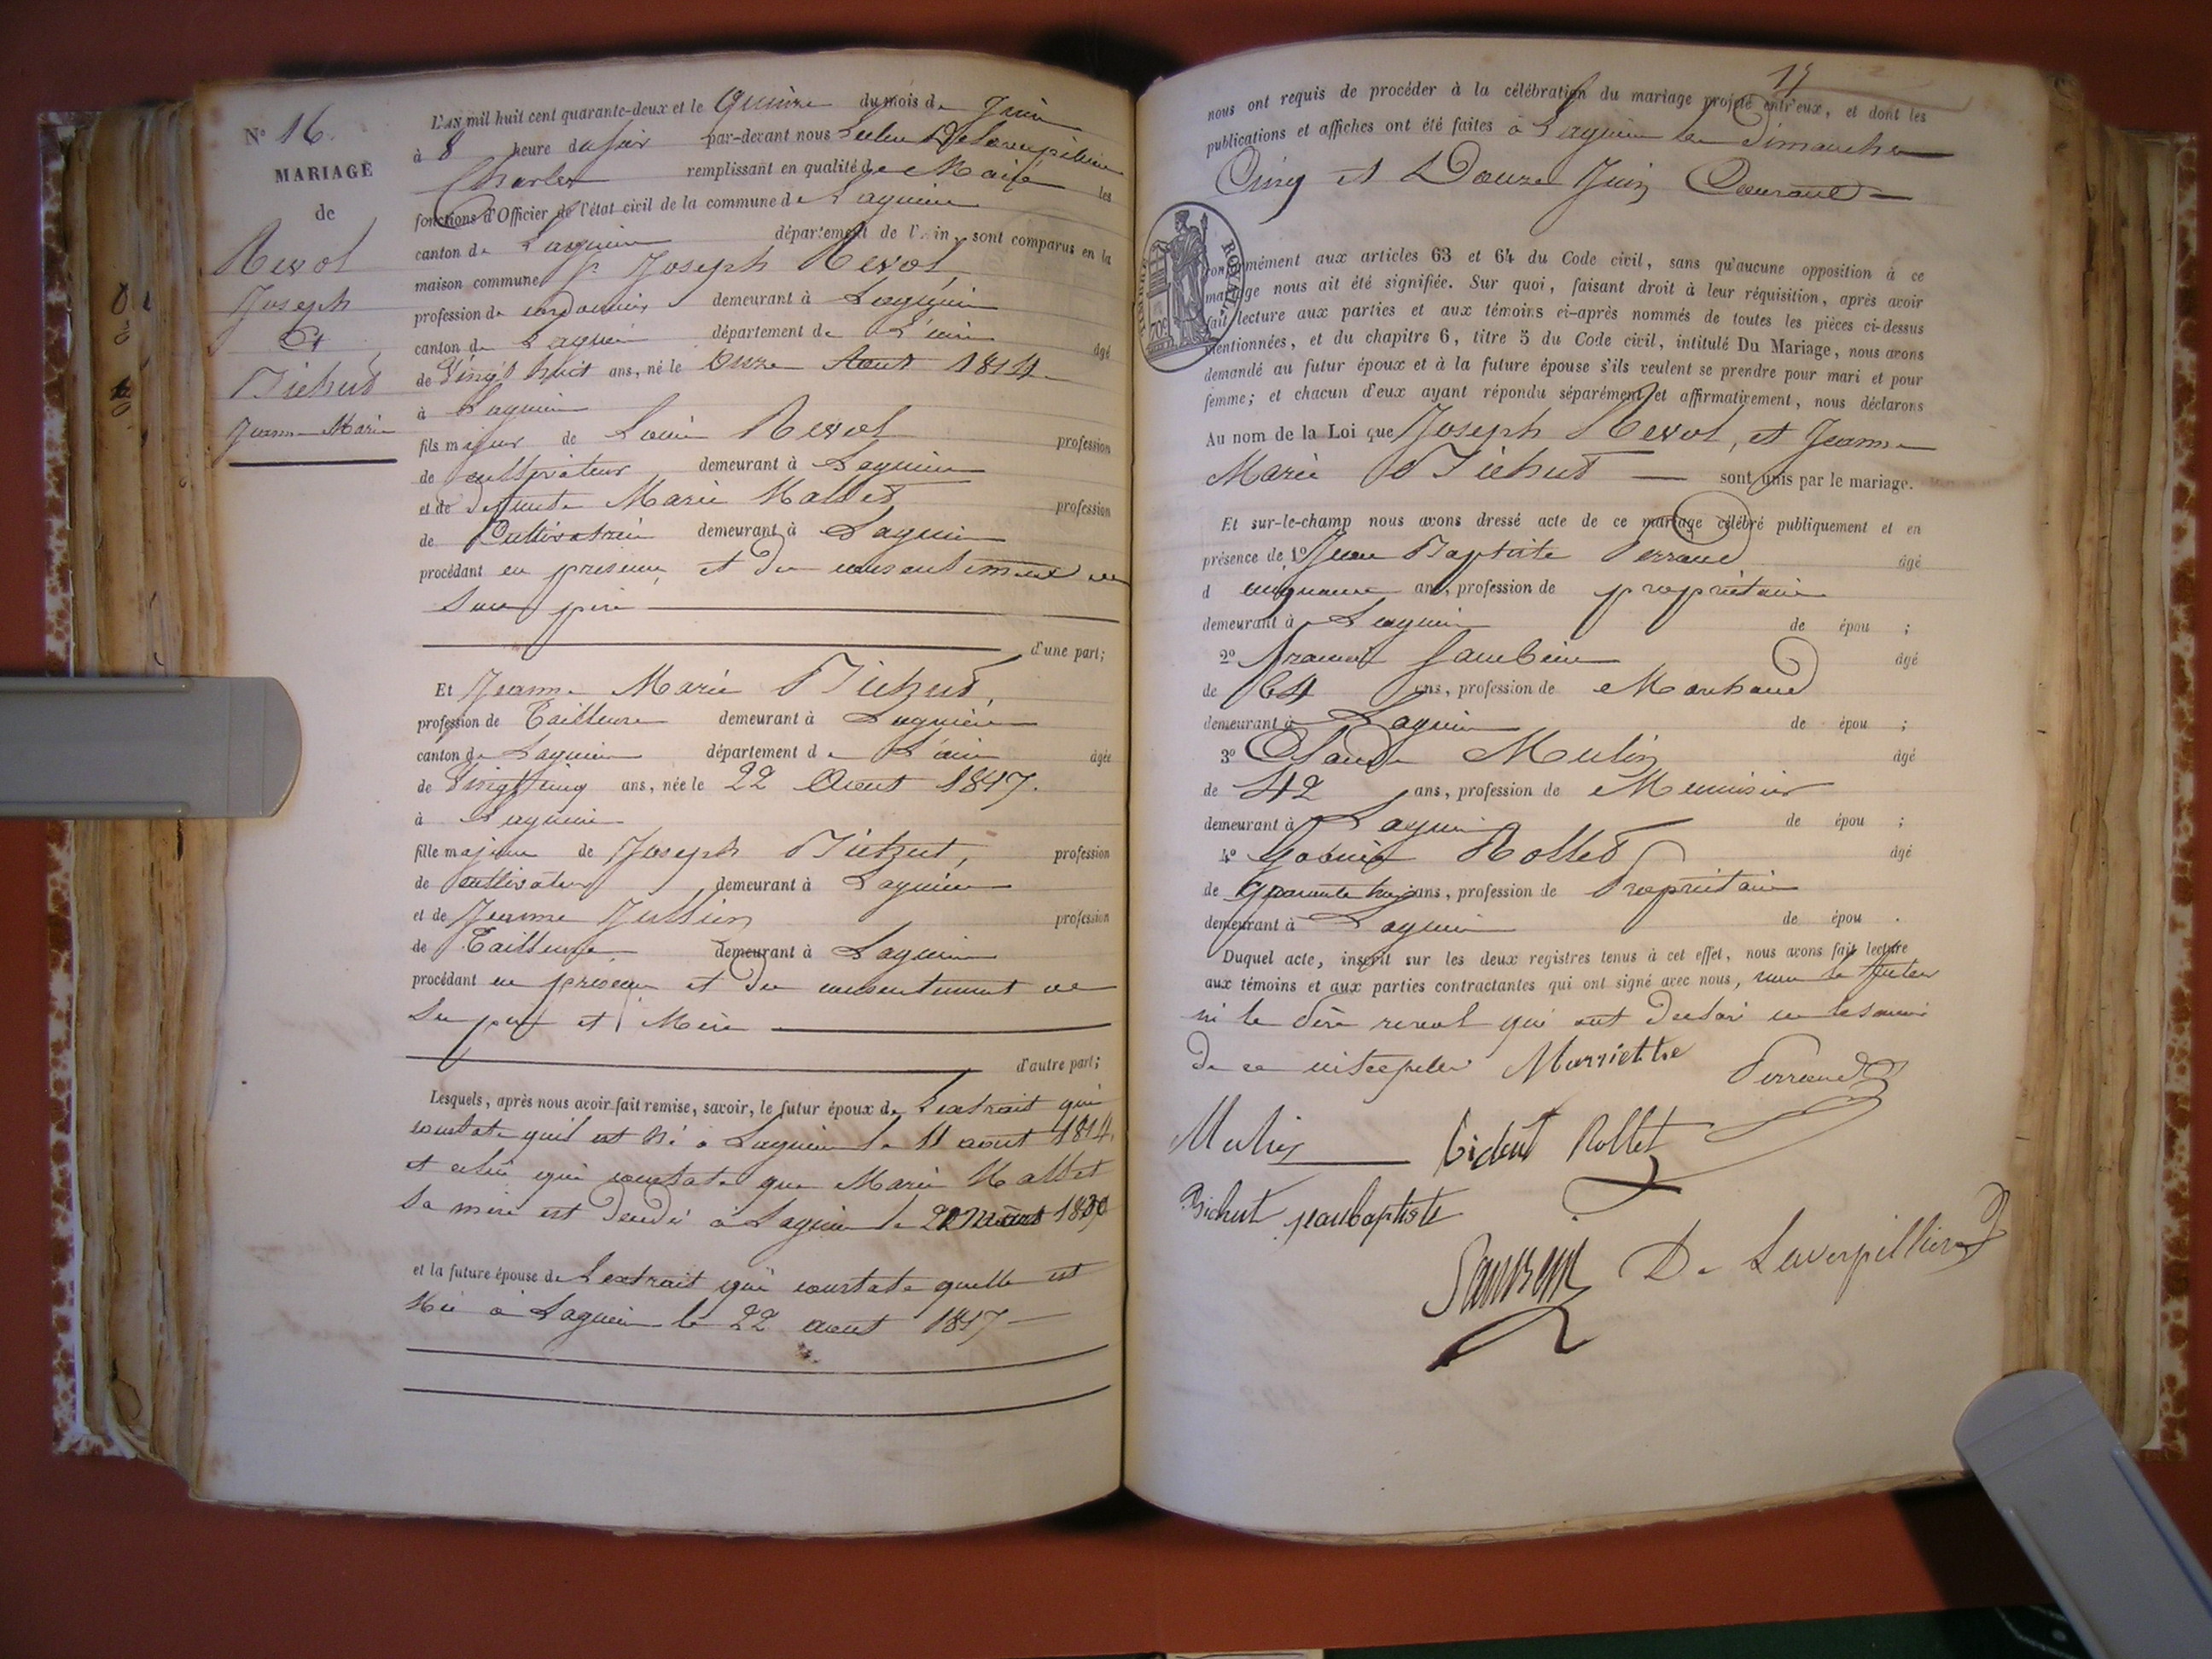 N° 16.
MARIAGE
de
Revol
Joseph
Et
Bichut
Jeanne Marie
L'AN mil huit cent quarante-deux et le Quinze du mois de Juin
à 8 heure du soir par-devant nous Delaverpilliere
Charles remplissant en qualité de Maire les
fonctions d'Officier de l'état civil de la commune de Lagnieu
canton de Lagnieu département de l'Ain, sont comparus en la
maison commune Joseph Revol,
profession de cordonnier demeurant à Lagnieu
canton de Lagnieu département de L'ain âgé
de Vingt huit ans, né le Onze Aout 1814
à Lagnieu
fils majeur de Louis Revol profession
de cultivateur demeurant à Lagnieu
et de defunte Marie Mallet profession
de Cultivatrice demeurant à Lagnieu
procédant en presence et du consentement de
Son père
d'une part;
Et Jeanne Marie Bichut,
profession de Tailleuse demeurant à Lagnieu
canton de Lagnieu département de L'ain âgée
de Vingt cinq ans, née le 22 Aout 1817.
à Lagnieu
fille majeure de Joseph Bichut, profession
de cultivateur demeurant à Lagnieu
et de Jeanne Jullien profession
de Tailleuse demeurant à Lagnieu
procédant en presence et du consentement de
Ses père et Mère
d'autre part;
Lesquels, après nous avoir fait remise, savoir, le futur époux de L'extrait qui
constate quil est Né à Lagnieu le 11 aout 1814,
et celui qui constate que Marie Mallet
Sa mère est décédé à Lagnieu le
et la future épouse de L'extrait qui constate quelle est
Née à Lagnieu le 22 aout 1817
17
nous ont requis de procéder à la célébration du mariage projeté entr'eux, et dont les
publications et affiches ont été faites à Lagnieu les Dimanches
Cinq et Douze Juin Courant
TIMBRE ROYAL
70c
conformément aux articles 63 et 64 du Code civil, sans qu'aucune opposition à ce
mariage nous ait été signifiée. Sur quoi, faisant droit à leur réquisition, après avoir
fait lecture aux parties et aux témoins ci-après nommés de toutes les pièces ci-dessus
mentionnées, et du chapitre 6, titre 5 du Code civil, intitulé Du Mariage, nous avons
demandé au futur époux et à la future épouse s'ils veulent se prendre pour mari et pour
femme; et chacun d'eux ayant répondu séparément et affirmativement, nous déclarons
Au nom de la Loi que Joseph Revol, et Jeanne
Marie Bichut sont unis par le mariage.
Et sur-le-champ nous avons dressé acte de ce mariage célébré publiquement et en
présence de 1° Jean Baptiste Perraud âgé
d cinquante ans, profession de propriétaire
demeurant à Lagnieu de épou ;
2° François âgé
de 64 ans, profession de Marchand
demeurant à Lagnieu de épou ;
3° Claude Mulin âgé
de 42 ans, profession de Menuisier
demeurant à Lagnieu de épou ;
4° Rollet âgé
de quarante ans, profession de Propriétaire
demeurant à Lagnieu de épou .
Duquel acte, inscrit sur les deux registres tenus à cet effet, nous avons fait lecture
aux témoins et aux parties contractantes qui ont signé avec nous, non le futur
ni le père revol qui ont declaré ne le savoir
de ce Marriette Perraud
Mulin bichut Rollet
Bichut jeanbaptiste
De Laverpilliere